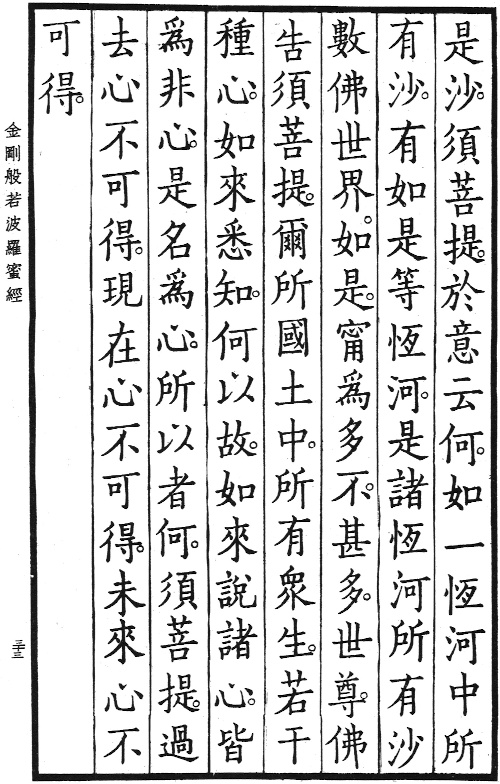 是沙。須菩提。於意云何。如一恆河中所
有沙。有如是等恆河。是諸恆河所有沙
數佛世界。如是。甯為多不。甚多。世尊。佛
告須菩提。爾所國土中。所有眾生。若干
種心。如來悉知。何以故。如來說諸心。皆
為非心。是名為心。所以者何。須菩提。過
去心不可得。現在心不可得。未來心不
可得。
金剛般若波羅蜜經
三十三